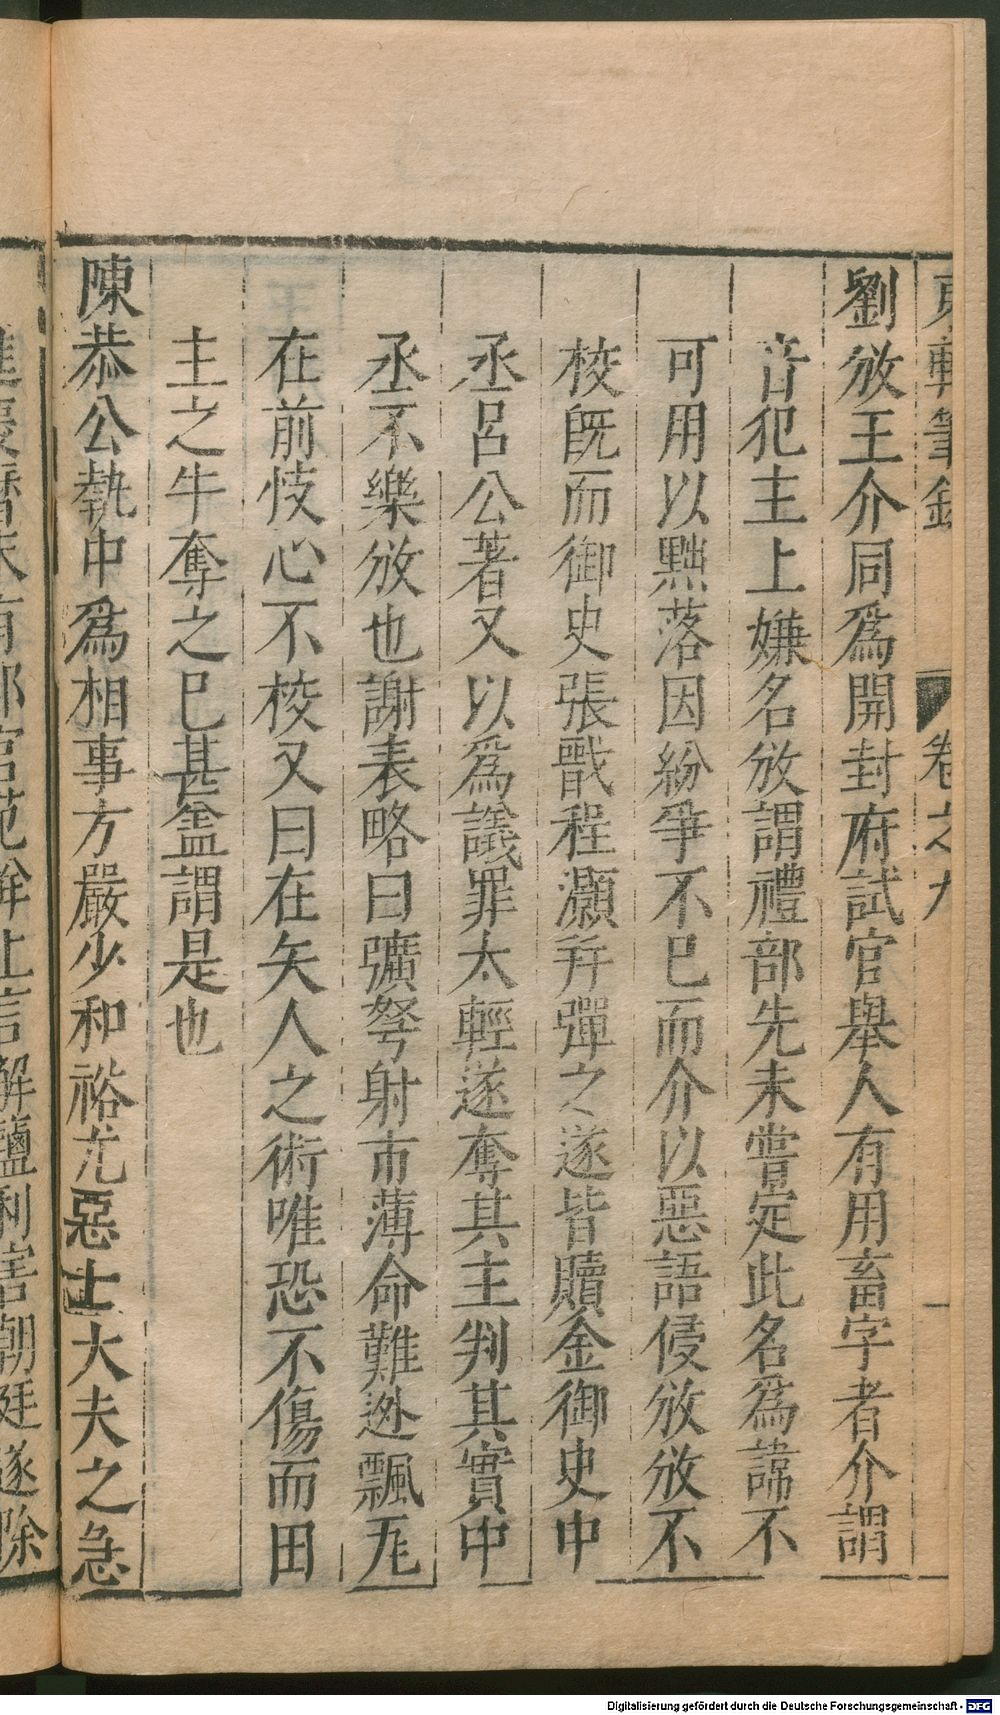 東軒筆錄 卷之九 一
劉攽王介同爲開封府試官舉人有用畜字者介謂
音犯主上嫌名攽謂禮部先未嘗定此名爲諱不
可用以黜落因紛爭不已而介以惡語侵攽攽不
校旣而御史張戩程灝幷彈之遂皆贖金御史中
丞呂公著又以爲議罪太輕遂奪其主判其實中
丞不樂攽也謝表略曰彍弩射市薄命難逃飄瓦
在前忮心不校又曰在矢人之術唯恐不傷而田
主之牛奪之已甚盖謂是也
陳恭公執中爲相事方嚴少和裕尤惡士大夫之急
進慶曆末有郎官范 上言解鹽利害朝廷遂除
Digitalisierung gefördert durch die Deutsche Forschungsgemeinschaft - DFG